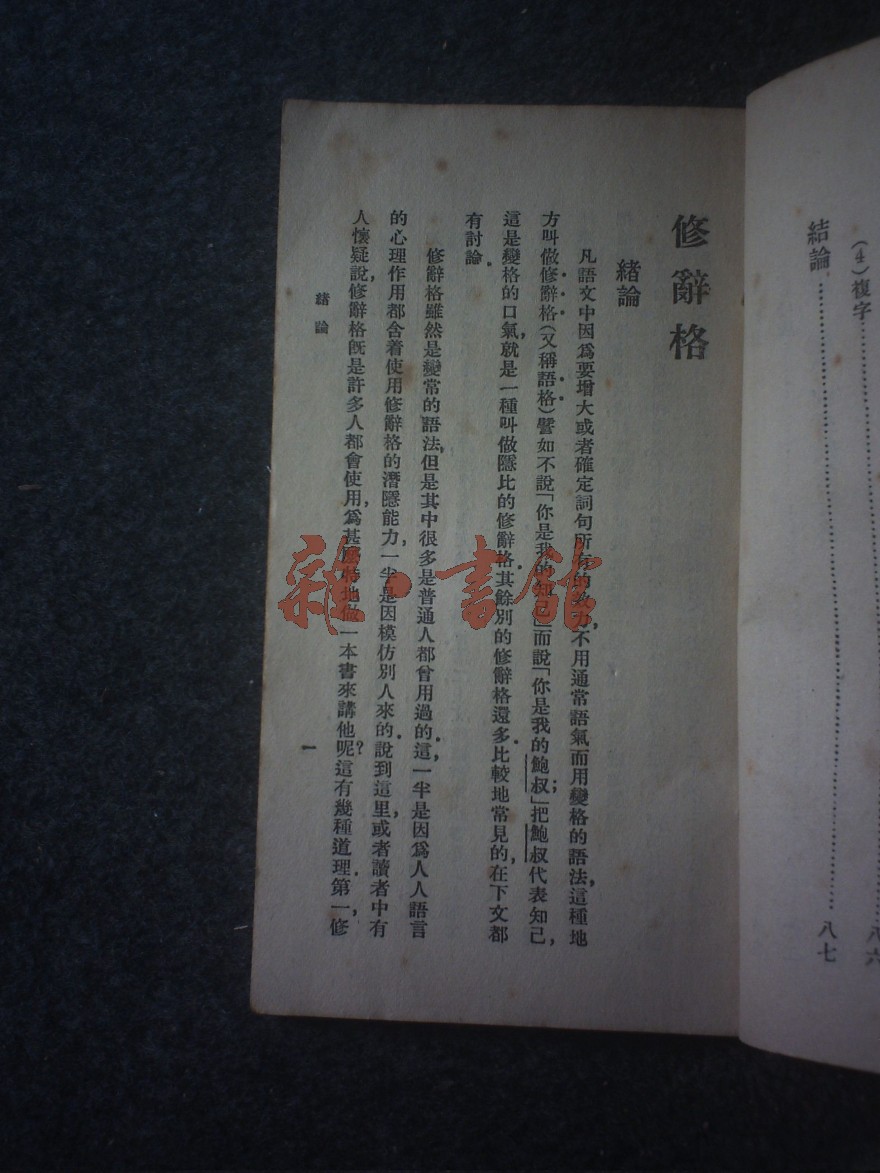 (4)複字……………………八六
結論……………………八七
修辭格
緒論
凡語文中因爲要增大或者確定詞句所有的效力,不用通常語氣而用變格的語法,這種地
方叫做修辭格(又稱語格)譬如不說「你是我的知己」而說「你是我的鮑叔」把鮑叔代表知己,
這是變格的口氣,就是一種叫做隱比的修辭格.其餘別的修辭格還多.比較地常見的,在下文都
有討論.
修辭格雖然是變常的語法,但是其中很多是普通人都曾用過的.這,一半是因爲人人語言
的心理作用都含着使用修辭格的潛隱能力,一半是因模仿別人來的.說到這里,或者讀者中有
人懷疑說,修辭格旣是許多人都會使用,爲甚麽特地做一本書來講他呢?這有幾種道理.第一,修
緒論
一
雜·書館